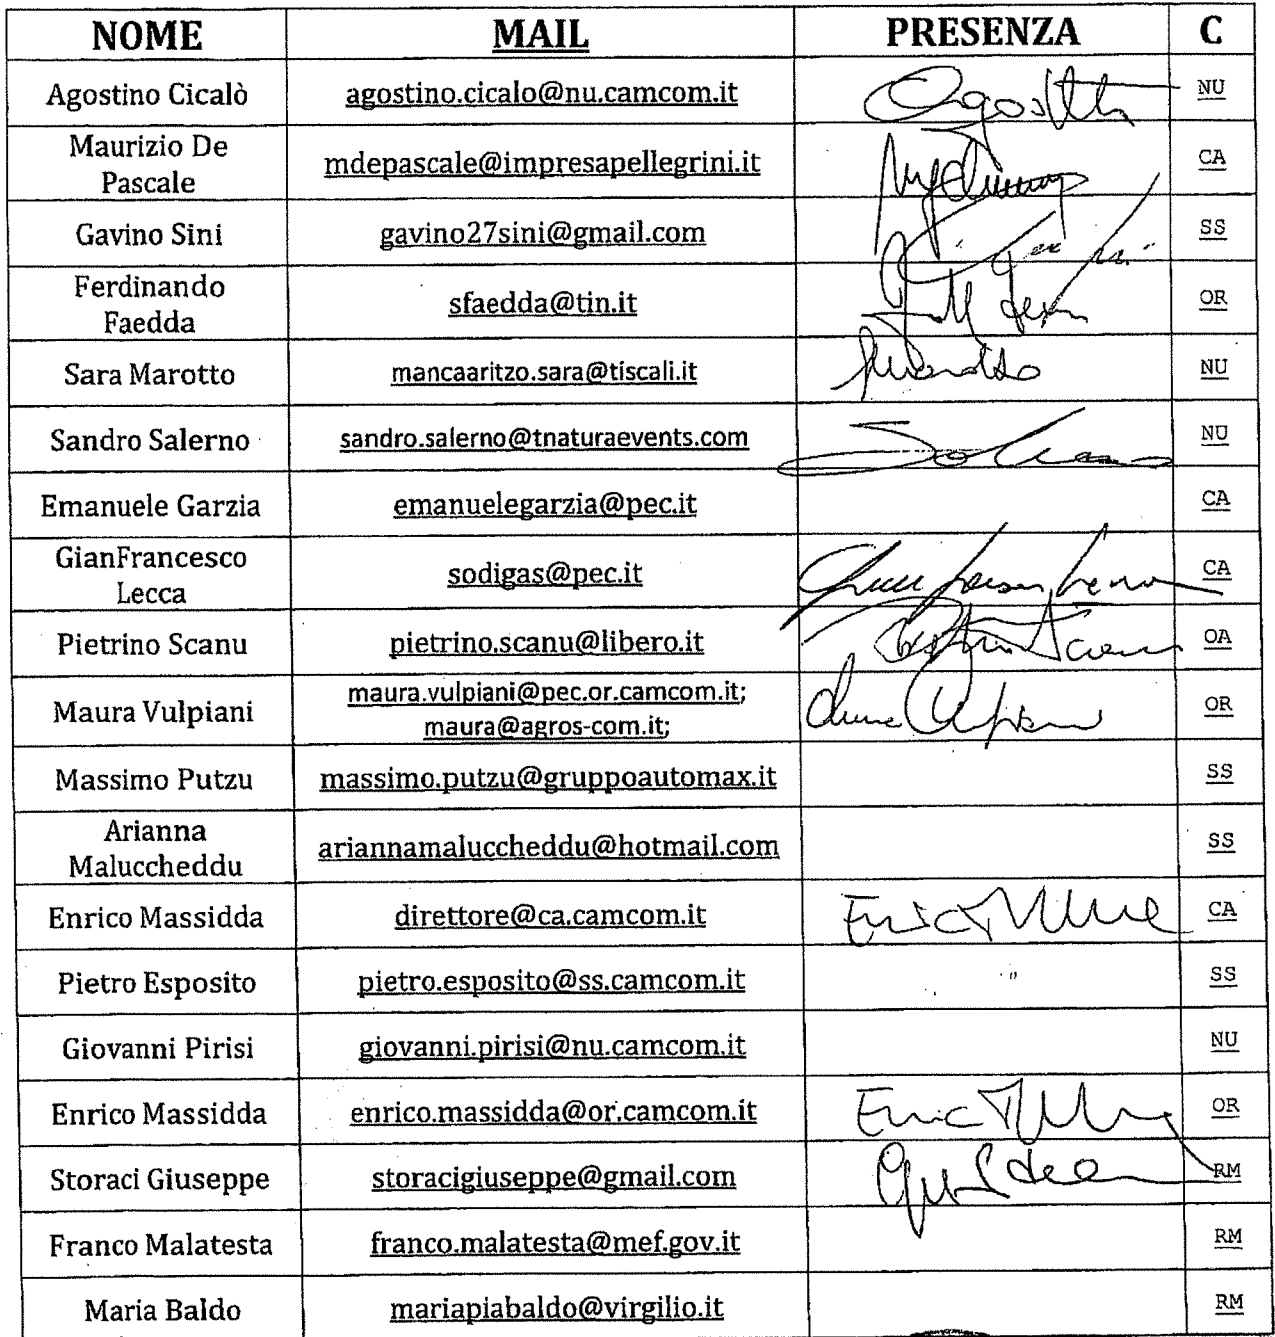 NOME MAIL PRESENZA C
Agostino Cicalò agostino.cicalo@nu.camcom.it NU
Maurizio De
Pascale mdepascale@impresapellegrini.it CA
Gavino Sini gavino27sini@gmail.com SS
Ferdinando
Faedda sfaedda@tin.it OR
Sara Marotto mancaaritzo.sara@tiscali.it NU
Sandro Salerno sandro.salerno@tnaturaevents.com NU
Emanuele Garzia emanuelegarzia@pec.it CA
GianFrancesco
Lecca sodigas@pec.it CA
Pietrino Scanu pietrino.scanu@libero.it OA
Maura Vulpiani maura.vulpiani@pec.or.camcom.it;
maura@agros-com.it; OR
Massimo Putzu massimo.putzu@gruppoautomax.it SS
Arianna
Maluccheddu ariannamaluccheddu@hotmail.com SS
Enrico Massidda direttore@ca.camcom.it CA
Pietro Esposito pietro.esposito@ss.camcom.it SS
Giovanni Pirisi giovanni.pirisi@nu.camcom.it NU
Enrico Massidda enrico.massidda@or.camcom.it OR
Storaci Giuseppe storacigiuseppe@gmail.com RM
Franco Malatesta franco.malatesta@mef.gov.it RM
Maria Baldo mariapiabaldo@virgilio.it RM